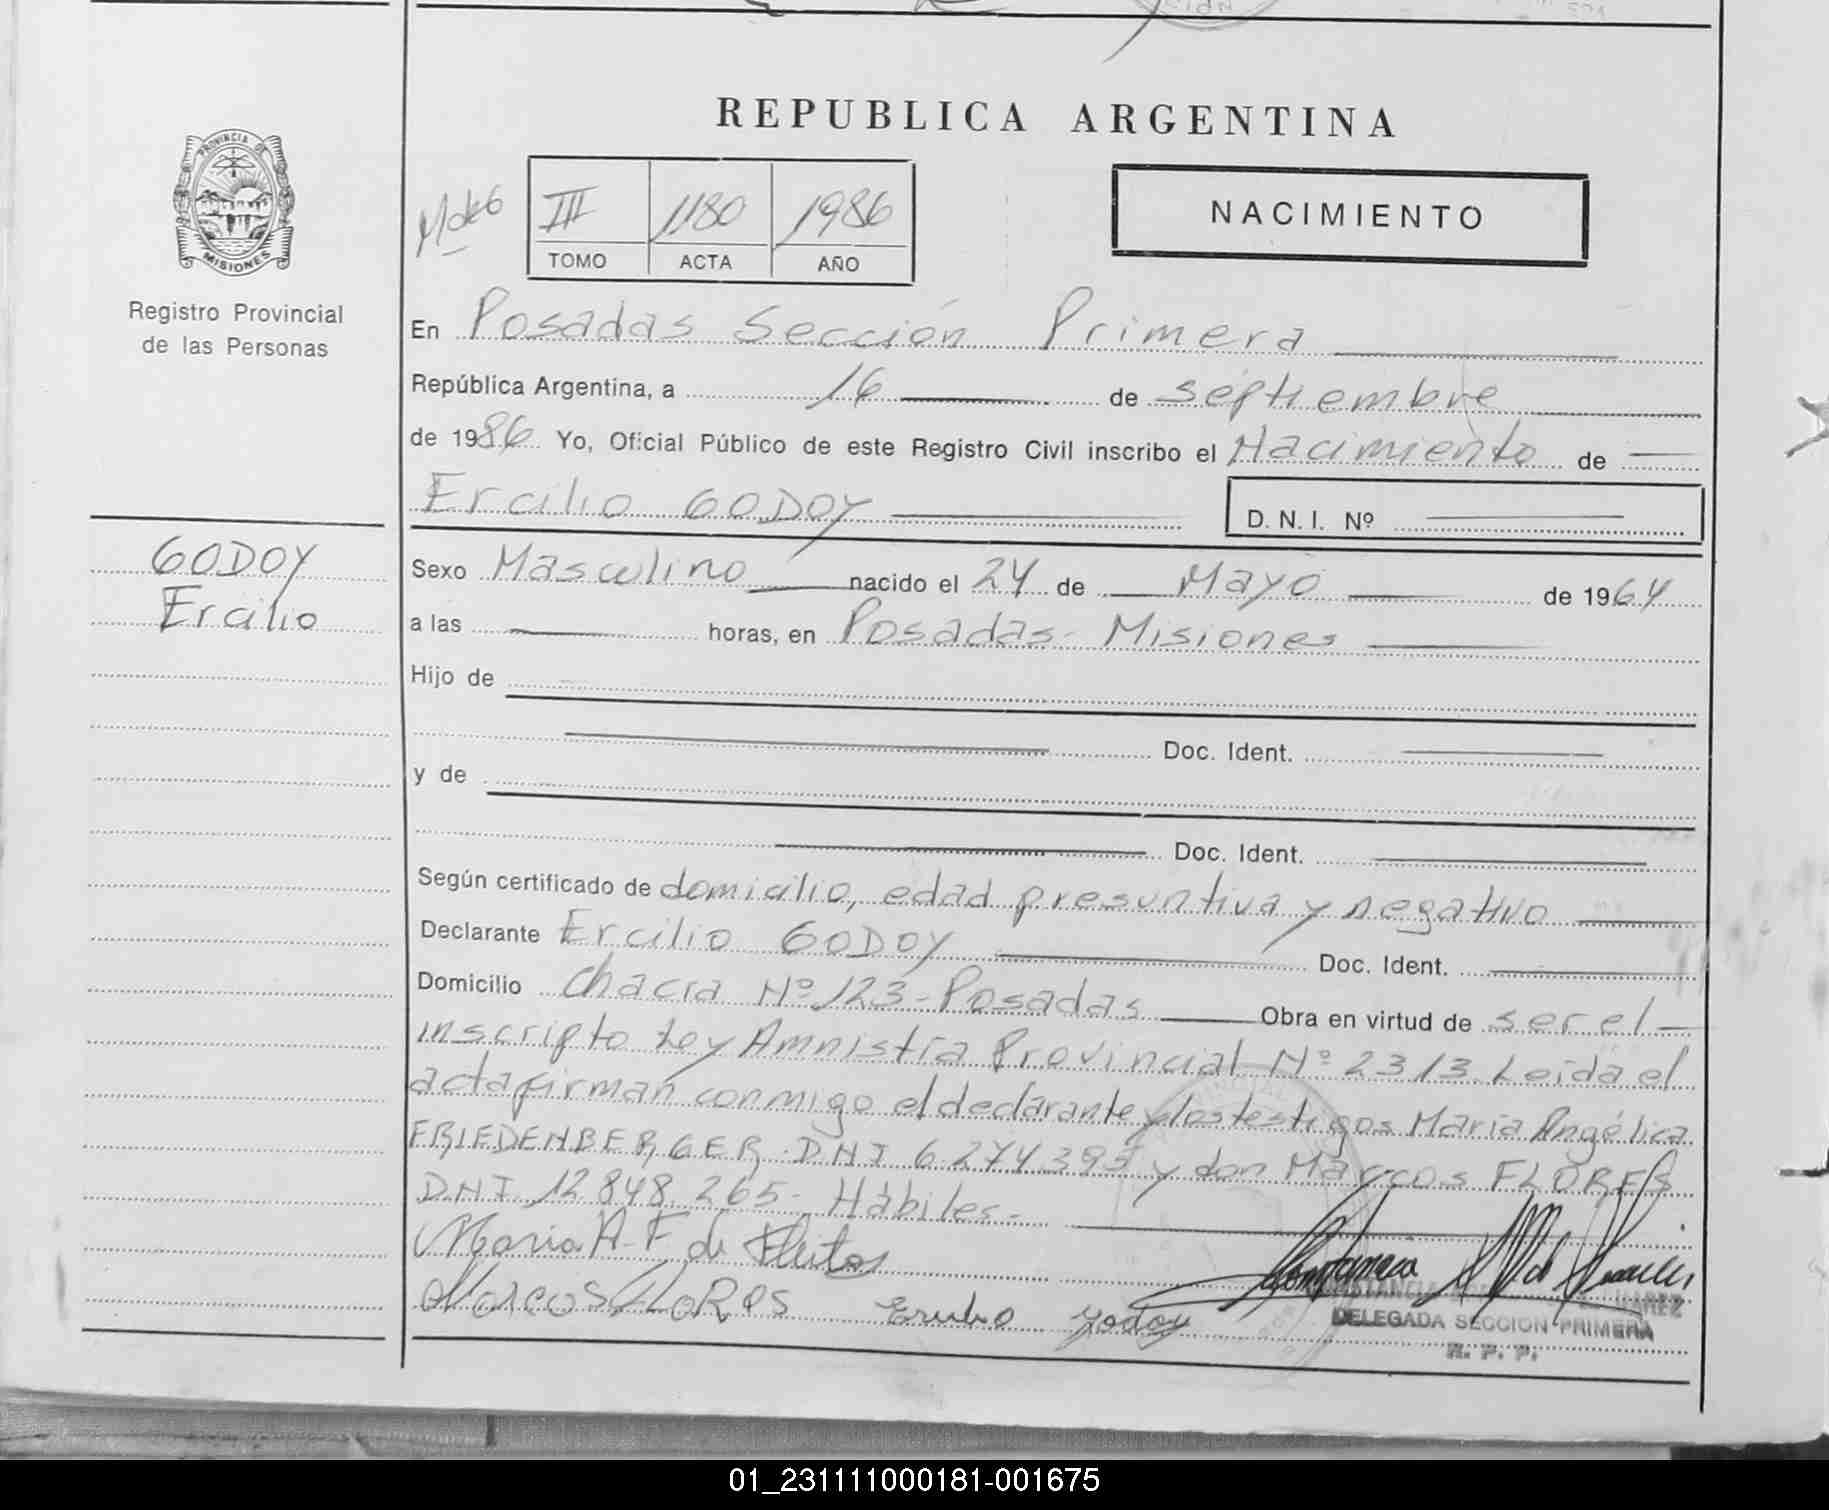 REPUBLICA ARGENTINA
PROVINCIA DE
MISIONES
Registro Provincial
de las Personas
III 1180 1986
TOMO ACTA AÑO
NACIMIENTO
En Posadas Sección Primera
República Argentina, a 16 de septiembre
de 1986 Yo, Oficial Público de este Registro Civil inscribo el Nacimiento de
Ercilio GODOY
D. N. I. Nº
GODOY
Ercilio
Sexo Masculino nacido el 24 de Mayo de 1964
a las horas, en Posadas- Misiones
Hijo de
Doc. Ident.
y de
Doc. Ident.
Según certificado de domicilio, edad presuntiva y negativo
Declarante Ercilio GODOY Doc. Ident.
Domicilio Chacra Nº 123-Posadas Obra en virtud de ser el
inscripto Ley Amnistía Provincial Nº 2313. Leída el
acta firman conmigo el declarante y los testigos María Angélica
FRIEDENBERGER DNI 6.274.395 y don Marcos FLORES
DNI 12.848.265- Hábiles-
Maria A. F. de
Marcos FLORES Ercilio Godoy
DELEGADA SECCION PRIMERA
R. P. P.
01_231111000181-001675